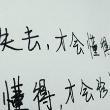 失去，才会懂得
懂得，才会